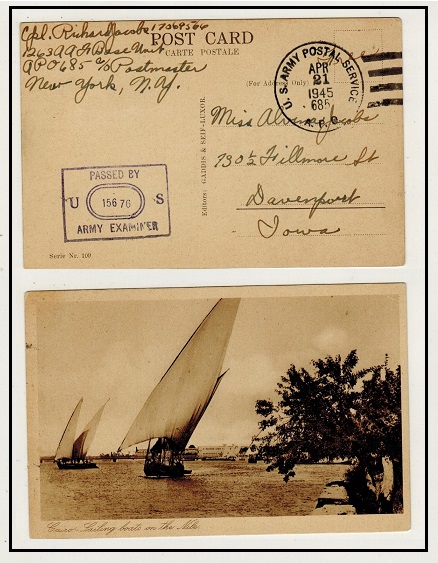 Cpl. Richard Jacobs 17069566
1263 AAF Base Unit
APO 685 c/o Postmaster
New York, N.Y.
POST CARD
CARTE POSTALE
(For Address Only)
U. S. ARMY POSTAL SERVICE
APR
21
1945
685
A.P.O.
Miss Jacobs
730 1/2 Fillmore St
Davenport
Iowa
Editors: GADDIS & SEIF-LUXOR.
PASSED BY
U 15676 S
ARMY EXAMINER
Serie Nr. 100
Cairo - Sailing boats on the Nile.